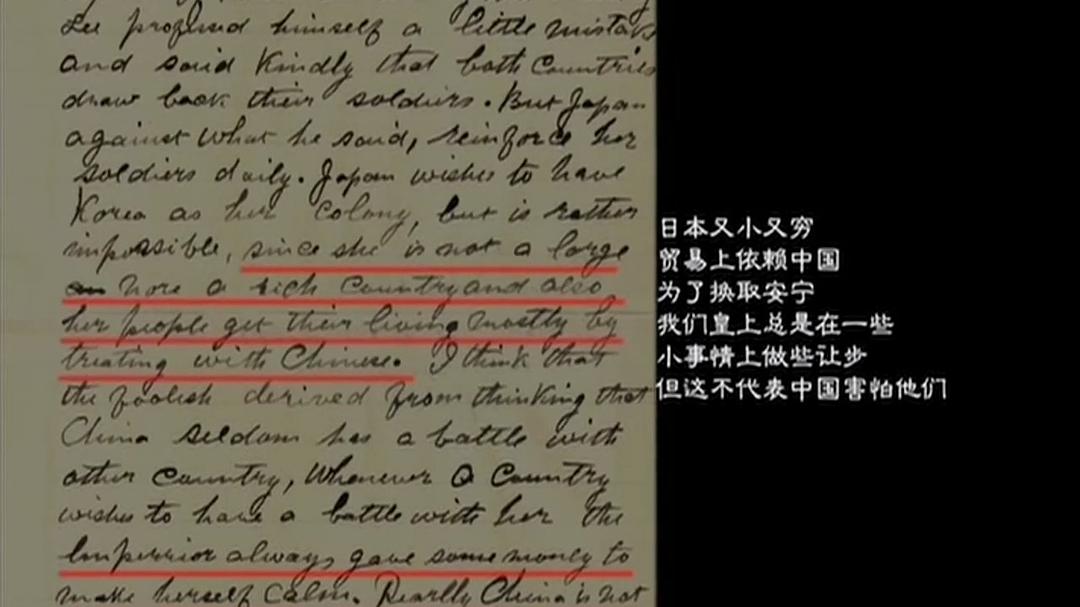 Lee profused himself a little mistake
and said Kindly that both Countries
draw back their soldiers. But Japan
against what he said, reinforce her
soldiers daily. Japan wishes to have
Korea as her Colony, but is rather
impossible, since she is not a large
nore a rich Country and also
her people get their living mostly by
treating with Chinese. I think that
the foolish derived from thinking that
China seldom has a battle with
other Country, Whenever a Country
wishes to have a battle with her the
Imperrior always gave some money to
make herself Calm. Rearlly China is not
日本又小又穷
贸易上依赖中国
为了换取安宁
我们皇上总是在一些
小事情上做些让步
但这不代表中国害怕他们